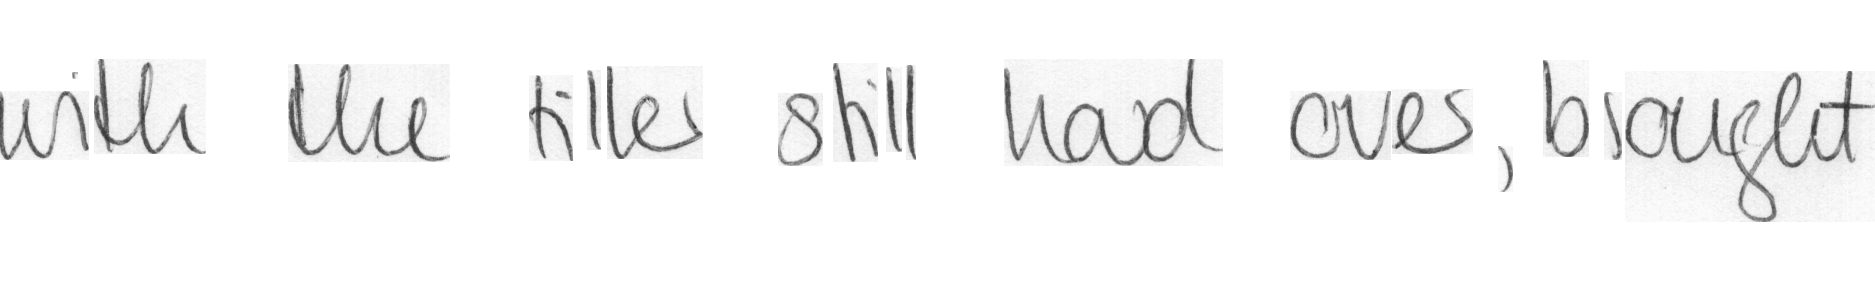 with the tiller still hard over, brought